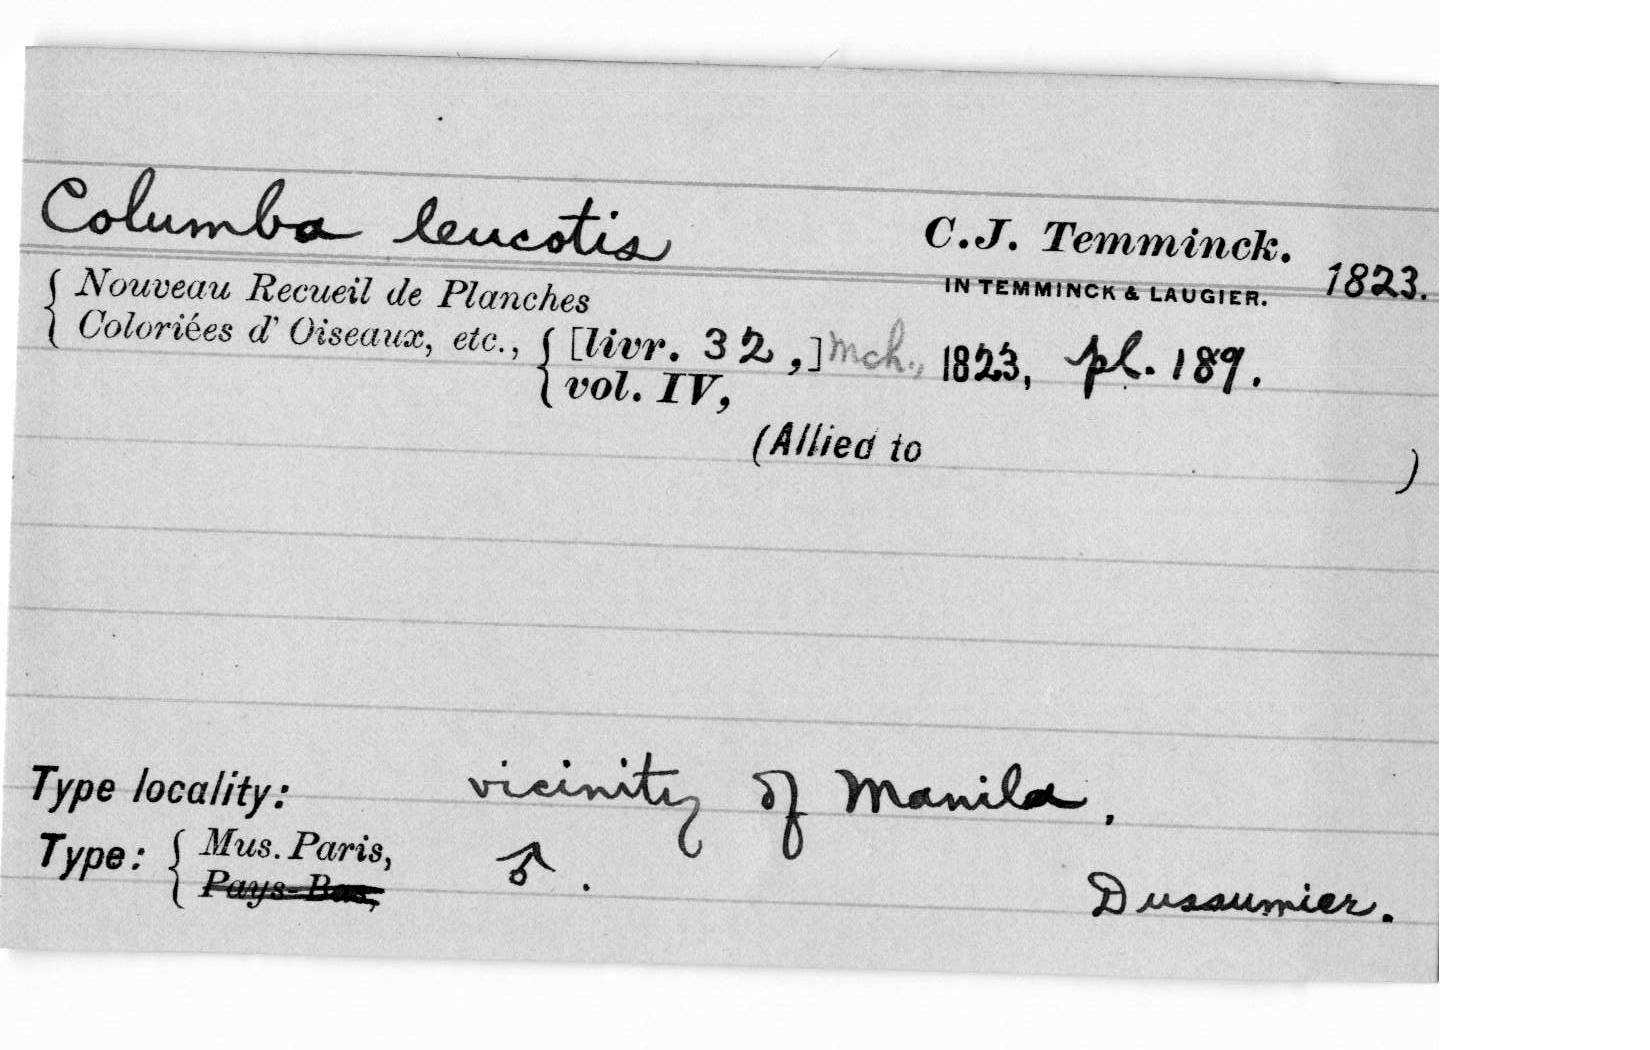 Columba leucotis C.J. Temminck.
IN TEMMINCK & LAUGIER. 1823.
{ Nouveau Recueil de Planches
Coloriées d' Oiseaux, etc., { [livr. 32,] Mch., 1823, pl. 189.
vol. IV,
(Allied to )
Type locality: vicinity of Manila.
Type: { Mus. Paris, ♂.
Pays-Bas, Dussumier.